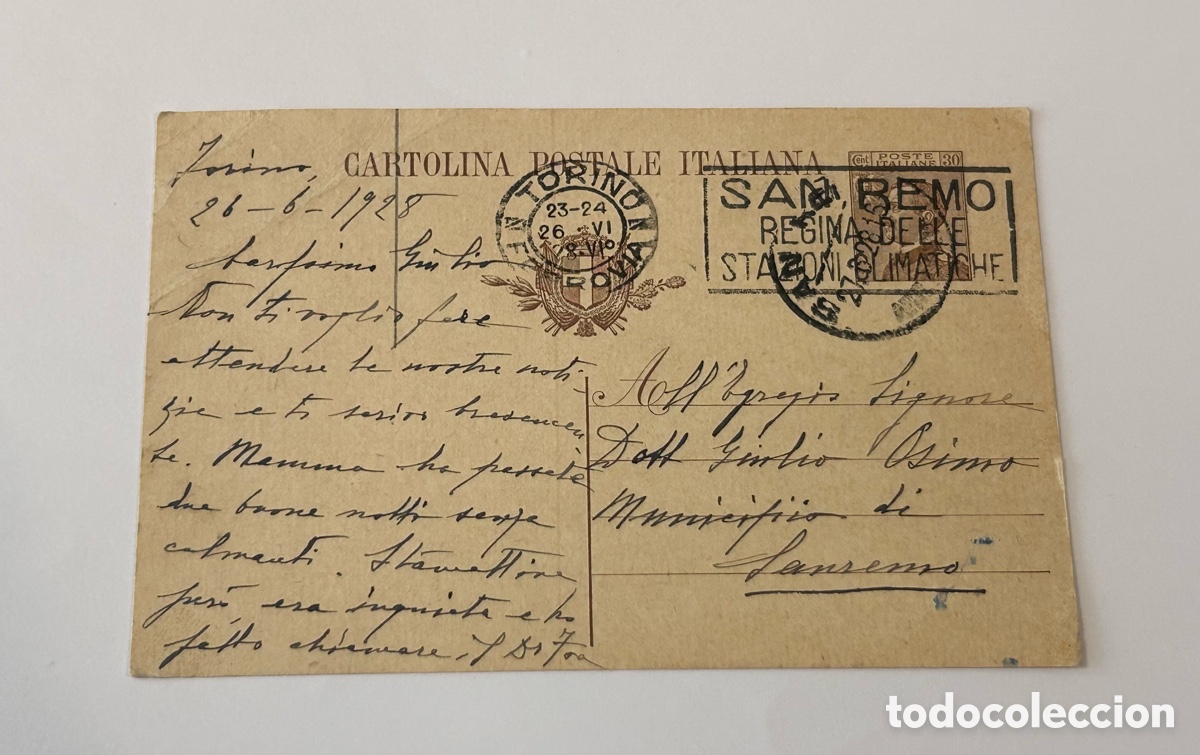 CARTOLINA POSTALE ITALIANA
Cent POSTE ITALIANE 30
TORINO
FERROVIA
23-24
26 VI
28-VI°
SAN REMO
REGINA DELLE
STAZIONI CLIMATICHE
SAN
27.6.28
Torino,
26-6-1928
Carissimo Giulio
Non ti voglio fare
attendere le nostre noti-
zie e ti scrivo brevemen
te. Mamma ha passato
due buone notti senza
calmanti. Stamattina
però era inquieta e ho
fatto chiamare il Dr Foa
All'Egregio Signore
Dott Giulio Osimo
Municipio di
Sanremo
todocoleccion